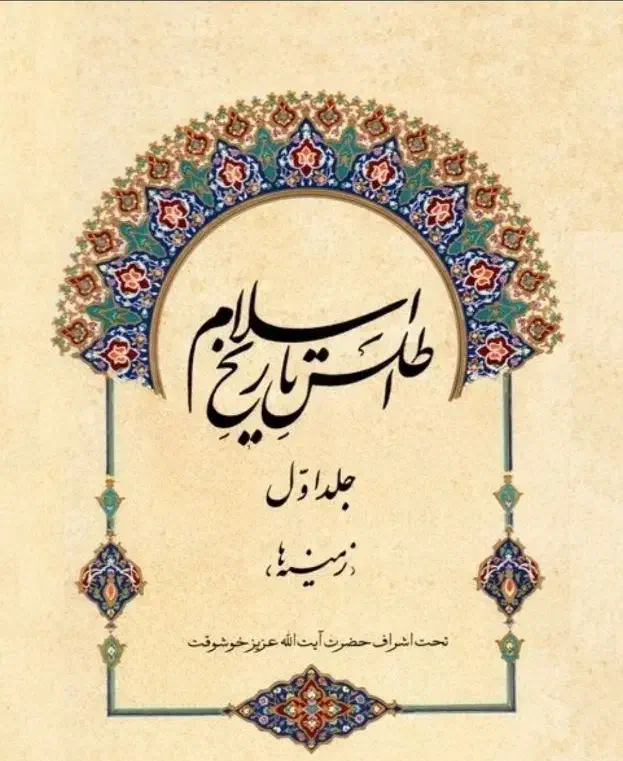 اطلس تاریخ اسلام
جلد اوّل
(زمینه‌ها)
تحت اشراف حضرت آیت‌الله عزیز خوشوقت